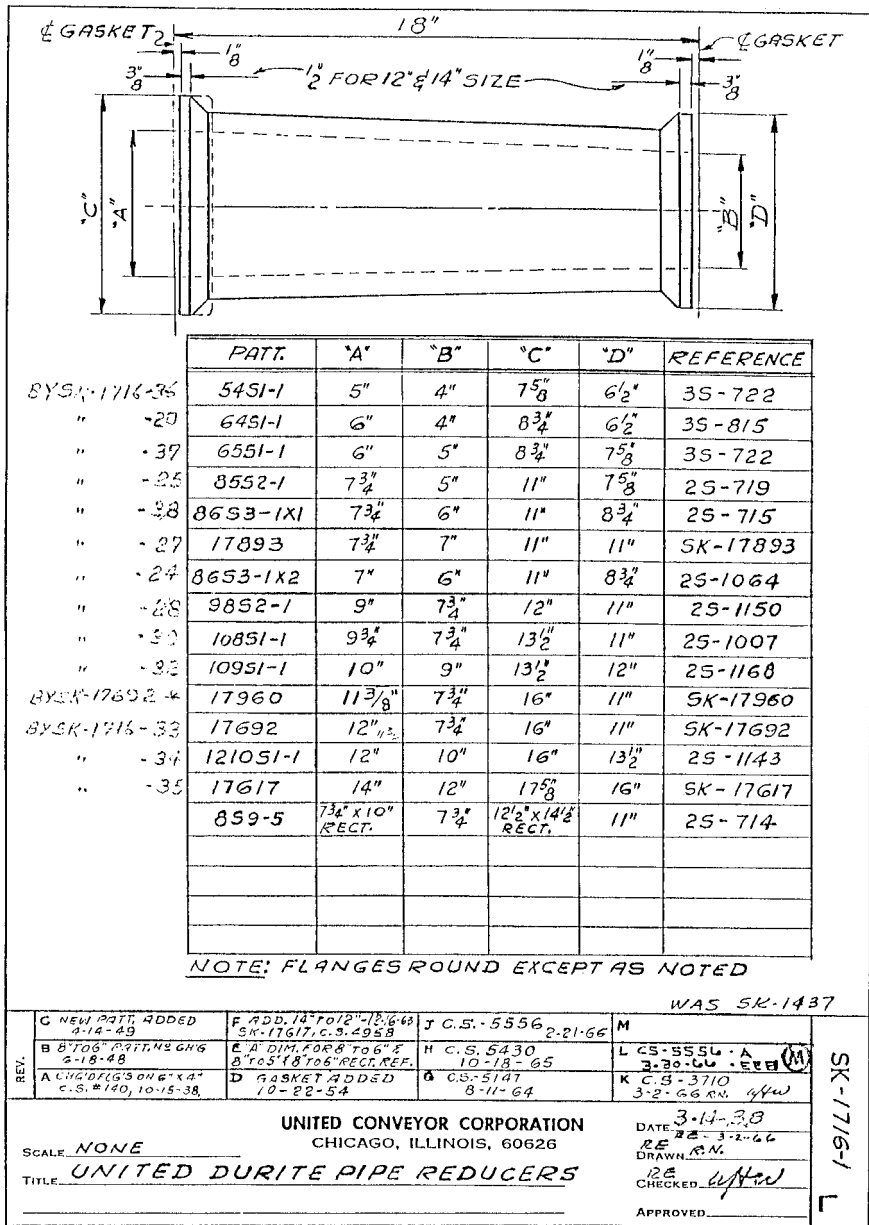 ℄ GASKET
18"
℄ GASKET
1/8"
1/8"
3/8"
1/2" FOR 12" & 14" SIZE
3/8"
"C"
"A"
"B"
"D"
PATT. "A" "B" "C" "D" REFERENCE
BYSK-1716-36 54S1-1 5" 4" 7 5/8" 6 1/2" 3S-722
" -20 64S1-1 6" 4" 8 3/4" 6 1/2" 3S-815
" -37 65S1-1 6" 5" 8 3/4" 7 5/8" 3S-722
" -25 85S2-1 7 3/4" 5" 11" 7 5/8" 2S-719
" -38 86S3-1X1 7 3/4" 6" 11" 8 3/4" 2S-715
" -27 17893 7 3/4" 7" 11" 11" SK-17893
" -24 86S3-1X2 7" 6" 11" 8 3/4" 2S-1064
" -28 98S2-1 9" 7 3/4" 12" 11" 2S-1150
" -30 108S1-1 9 3/4" 7 3/4" 13 1/2" 11" 2S-1007
" -32 109S1-1 10" 9" 13 1/2" 12" 2S-1168
BYSK-17692-* 17960 11 3/8" 7 3/4" 16" 11" SK-17960
BYSK-1716-33 17692 12" 7 3/4" 16" 11" SK-17692
" -34 1210S1-1 12" 10" 16" 13 1/2" 2S-1143
" -35 17617 14" 12" 17 5/8" 16" SK-17617
8S9-5 7 3/4" X 10" RECT. 7 3/4" 12 1/2" X 14 1/2" RECT. 11" 2S-714
NOTE: FLANGES ROUND EXCEPT AS NOTED
WAS SK-1437
REV.
C NEW PATT. ADDED
4-14-49
F ADD. 14" TO 12"-12-16-63
SK-17617, C.S. 4958
J C.S.-5556 2-21-66
M
B 8" TO 6" PATT. Nº CH'G
6-18-48
E "A" DIM. FOR 8" TO 6" &
8" TO 5" & 8" TO 6" RECT. REF.
H C.S. 5430
10-18-65
L CS-5556-A
3-30-66
M
A CHG'D FLG'S ON 6" X 4"
C.S. #140, 10-15-38
D GASKET ADDED
10-22-54
G C.S.-5147
8-11-64
K C.S-3710
3-2-66 RN.
UNITED CONVEYOR CORPORATION
CHICAGO, ILLINOIS, 60626
SCALE NONE
TITLE UNITED DURITE PIPE REDUCERS
DATE 3-14-38
RE RE-3-2-66
DRAWN R.N.
RE
CHECKED
APPROVED
SK-1716-1 L